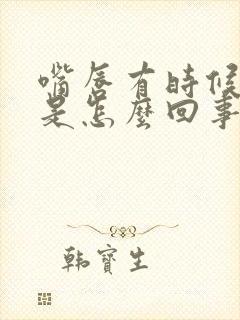 嘴唇有时候
是怎麼回事
韩寶生